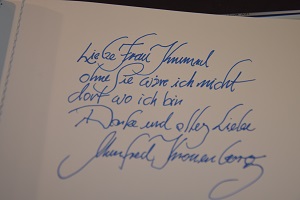 Liebe Frau Kummul
ohne Sie wäre ich nicht
dort wo ich bin
Danke und alles Liebe
Manfred Kronenberg